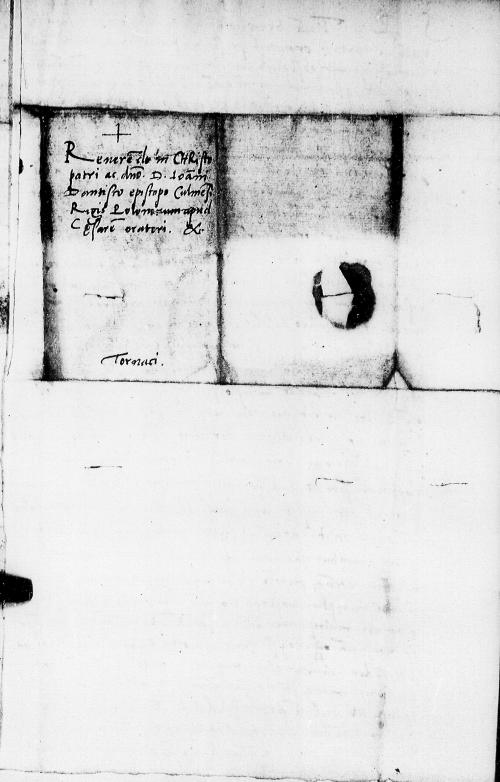 +
Reuerēdo in CHRisto
patri ac dño. D. Ioāni
Dantisco epistopo Culmēsi
Regis Polonorum apud
Cęsarē oratori. &c.
Tornaci.